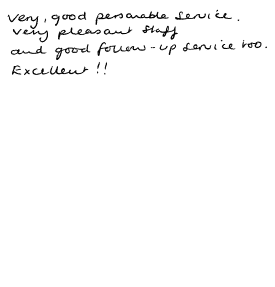 very, good personable service.
very pleasant staff
and good follow-up service too.
Excellent !!